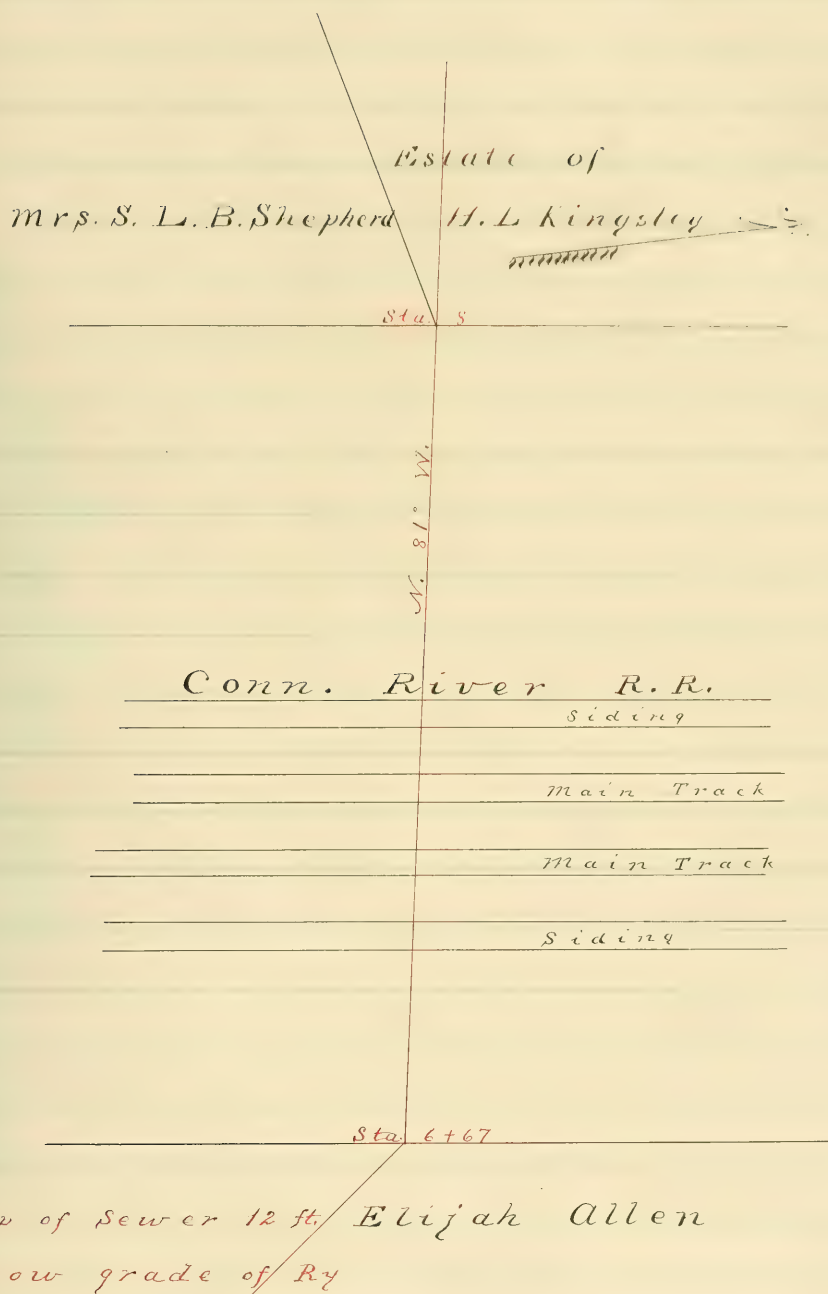 Estate of
Mrs. S. L. B. Shepherd H. L Kingsley
Sta. 8
N. 81° W.
Conn. River R. R.
Siding
Main Track
Main Track
Siding
Sta. 6+67
of Sewer 12 ft. Elijah Allen
ow grade of Ry